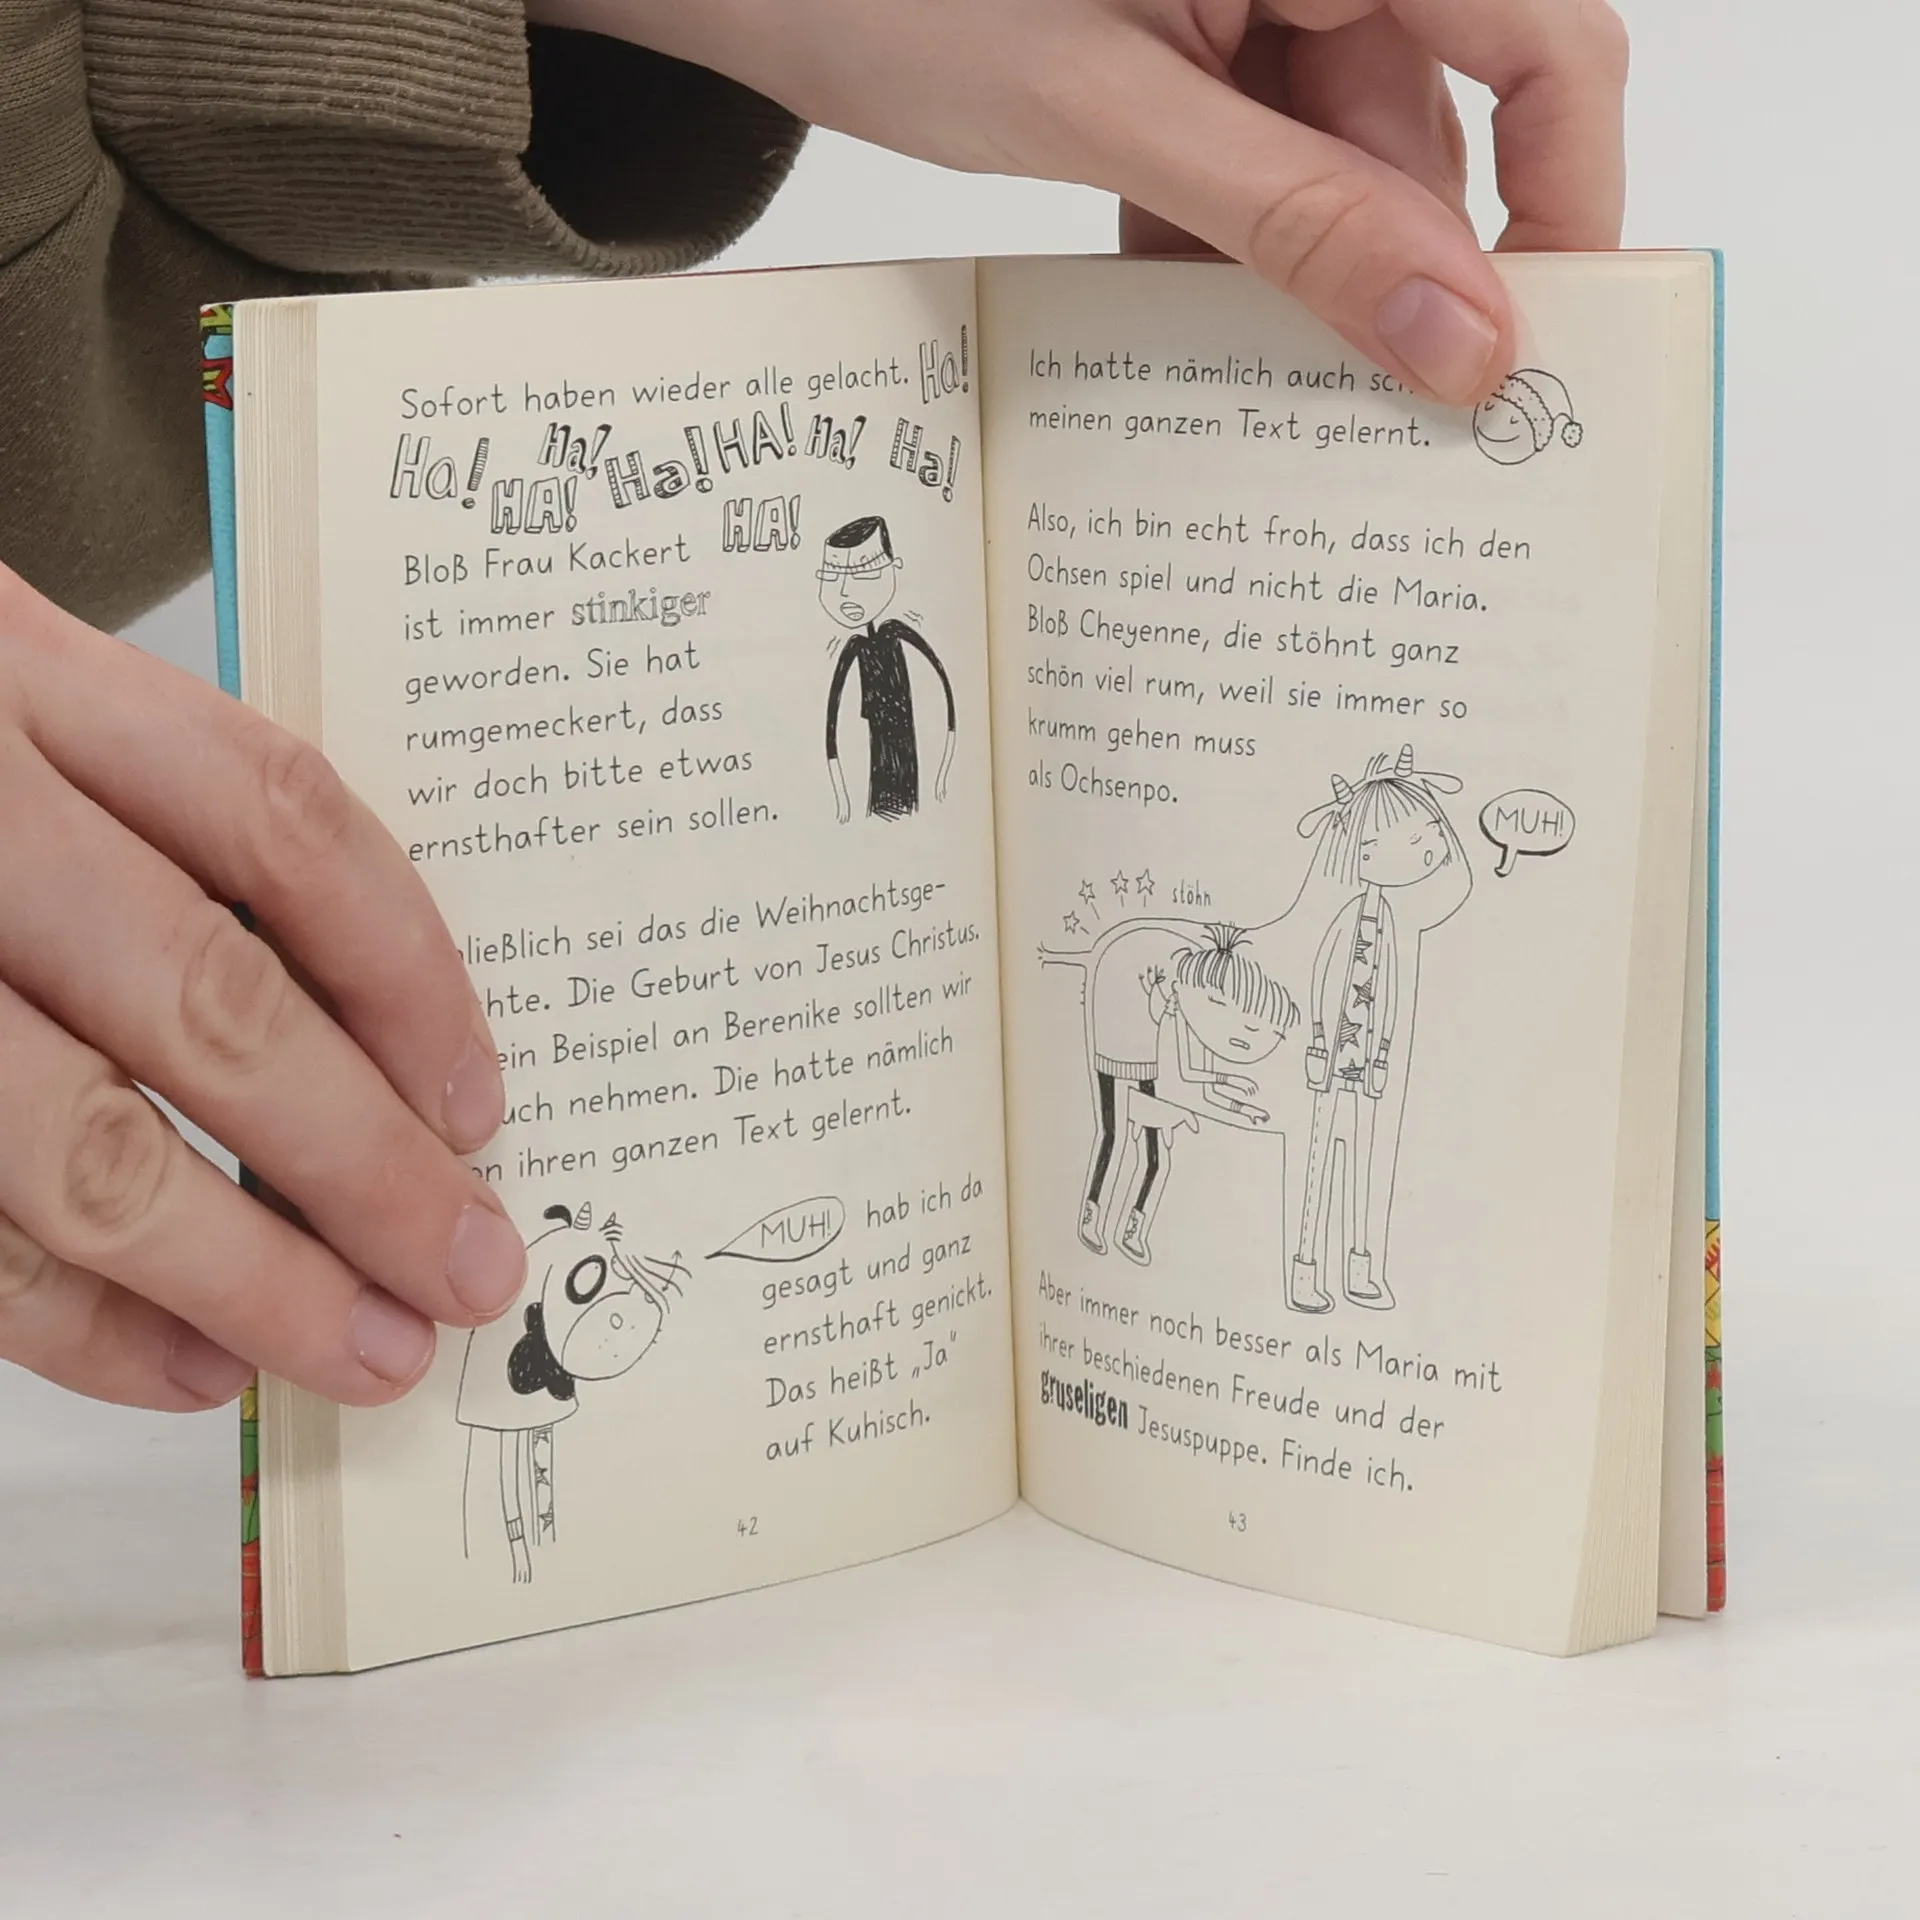 Sofort haben wieder alle gelacht. Ha!
Ha! HA! Ha! Ha! HA! Ha! Ha!
HA!
Bloß Frau Kackert
ist immer stinkiger
geworden. Sie hat
rumgemeckert, dass
wir doch bitte etwas
ernsthafter sein sollen.
ließlich sei das die Weihnachtsge-
hte. Die Geburt von Jesus Christus.
ein Beispiel an Berenike sollten wir
uch nehmen. Die hatte nämlich
en ihren ganzen Text gelernt.
MUH! hab ich da
gesagt und ganz
ernsthaft genickt.
Das heißt „Ja“
auf Kuhisch.
42
Ich hatte nämlich auch
meinen ganzen Text gelernt.
Also, ich bin echt froh, dass ich den
Ochsen spiel und nicht die Maria.
Bloß Cheyenne, die stöhnt ganz
schön viel rum, weil sie immer so
krumm gehen muss
als Ochsenpo.
MUH!
stöhn
Aber immer noch besser als Maria mit
ihrer beschiedenen Freude und der
gruseligen Jesuspuppe. Finde ich.
43